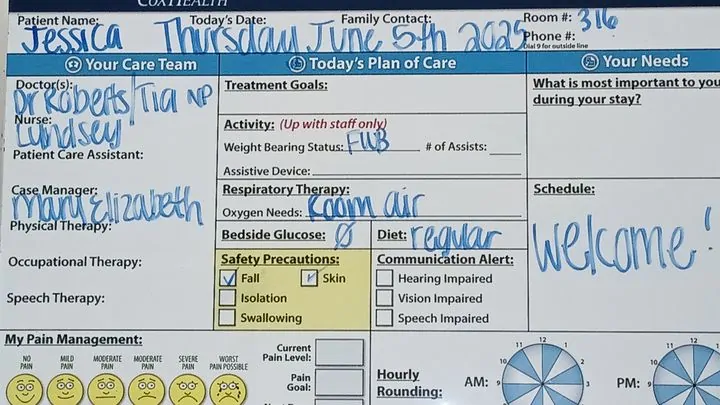 COXHEALTH
Patient Name: Today's Date: Family Contact: Room #: 316
Jessica Thursday June 5th 2025 Phone #:
Dial 9 for outside line
Your Care Team Today's Plan of Care Your Needs
Doctor(s): Treatment Goals: What is most important to you
Dr Roberts/Tia NP during your stay?
Nurse:
Lyndsey Activity: (Up with staff only)
Patient Care Assistant: Weight Bearing Status: FWB # of Assists:
Assistive Device:
Case Manager: Respiratory Therapy: Schedule:
Mary Elizabeth Oxygen Needs: Room air
Physical Therapy: Bedside Glucose: Ø Diet: regular Welcome!
Occupational Therapy: Safety Precautions: Communication Alert:
Fall Skin Hearing Impaired
Speech Therapy: Isolation Vision Impaired
Swallowing Speech Impaired
My Pain Management: Current
Pain Level:
NO PAIN MILD PAIN MODERATE PAIN MODERATE PAIN SEVERE PAIN WORST PAIN POSSIBLE
Pain Goal: Hourly Rounding: AM: PM:
11 12 1 11 12 1
10 2 10 2
9 3 9